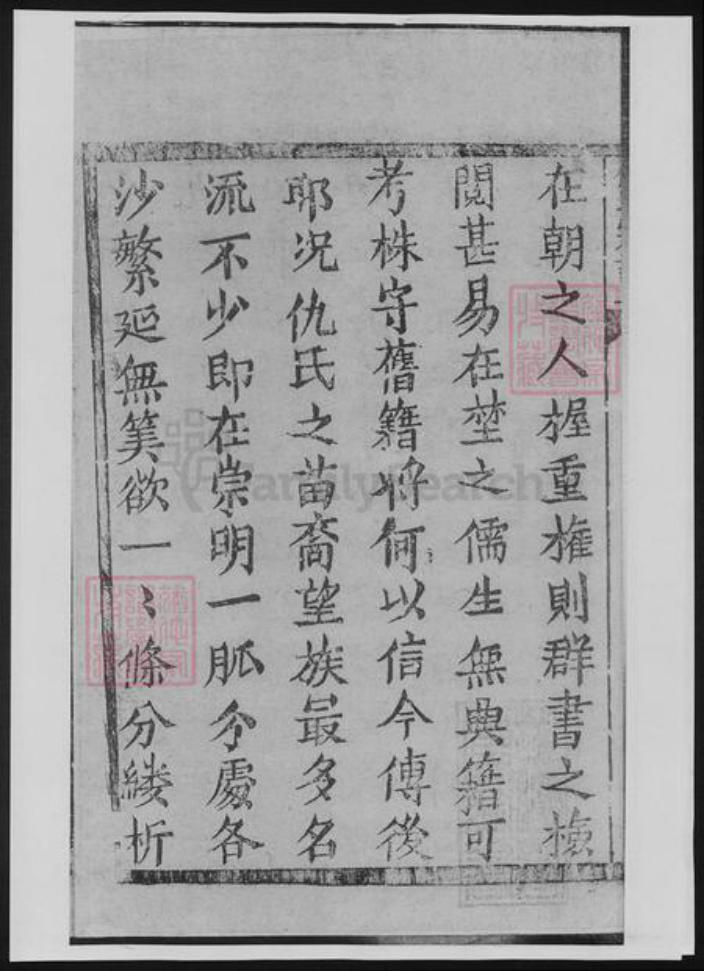 在朝之人握重權則群書之檢
閱甚易在埜之儒生無典籍可
考株守舊籍將何以信今傳後
耶况仇氏之苗裔望族最多名
流不少即在崇明一脈分處各
沙繁延無筭欲一〻條分縷析
FamilySearch